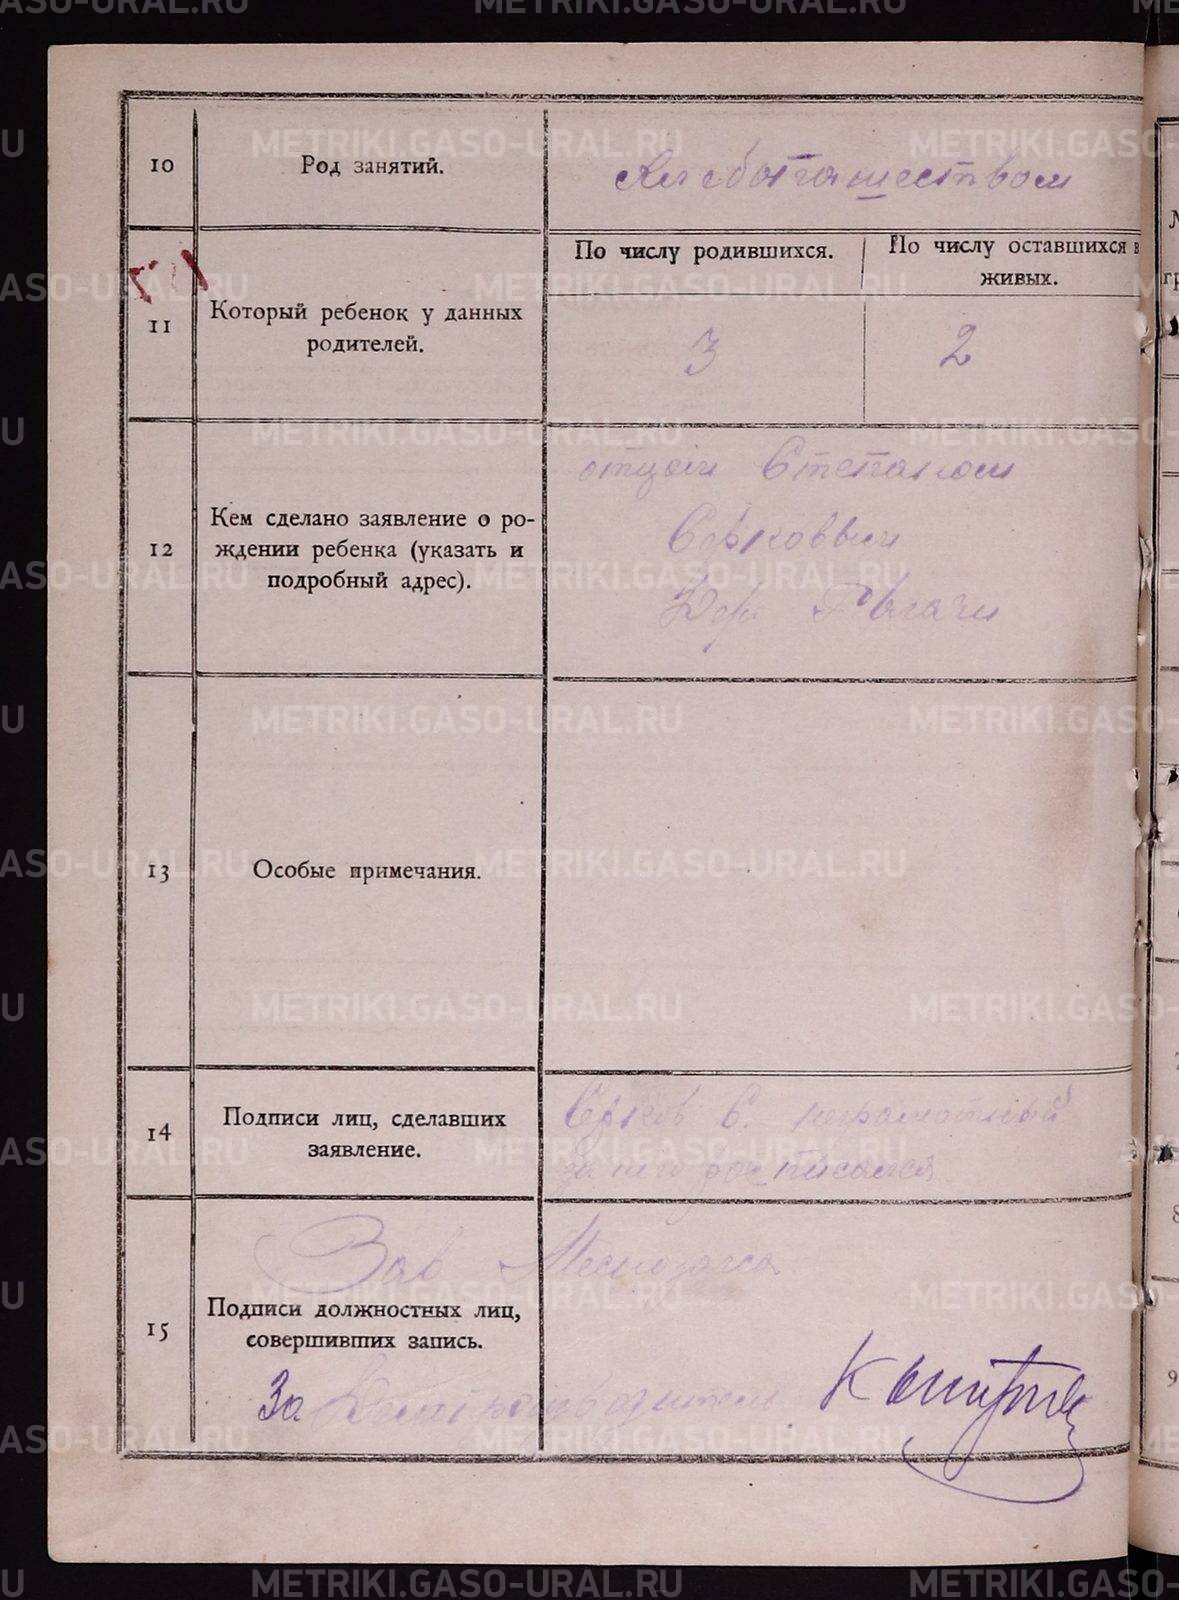 METRIKI.GASO-URAL.RU
10
Род занятий.
По числу родившихся.
По числу оставшихся в
живых.
11
Который ребенок у данных
родителей.
3
2
12
Кем сделано заявление о ро-
ждении ребенка (указать и
подробный адрес).
отцом Степаном
Серковым
Дер.
13
Особые примечания.
14
Подписи лиц, сделавших
заявление.
Серков С. неграмотный
за него росписался
Зав
15
Подписи должностных лиц,
совершивших запись.
За Делопроизводитель